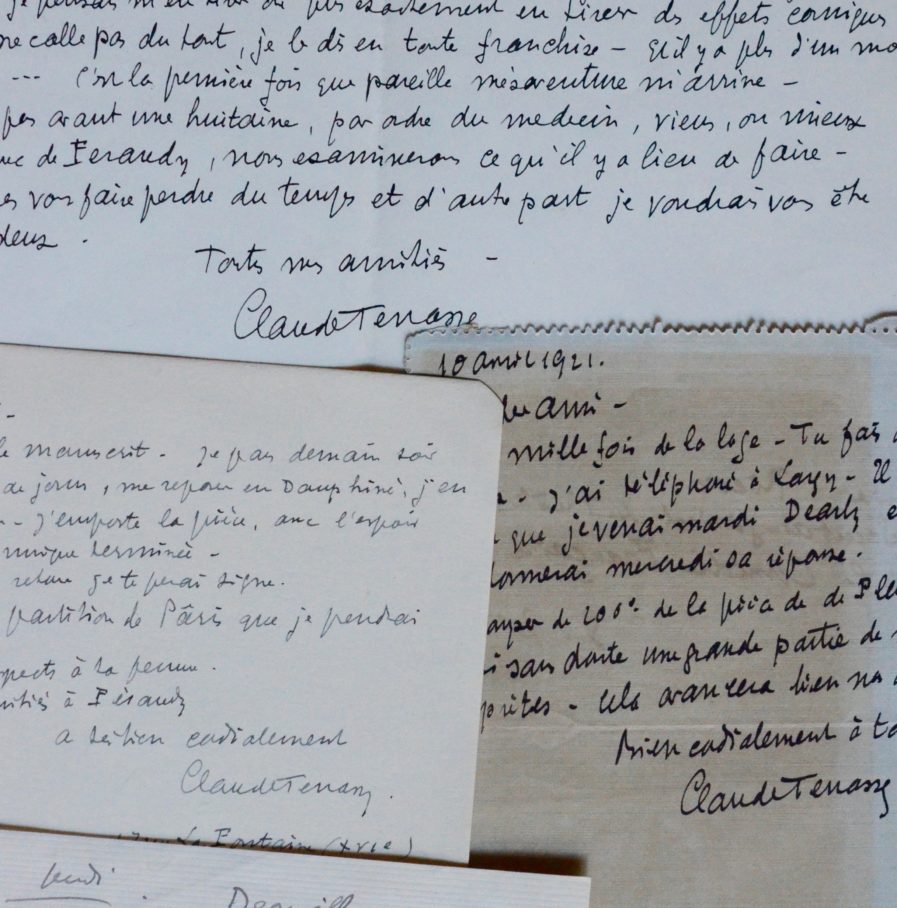 je pensais m'en tirer ou plus exactement en tirer des effets comiques
calle pas du tout, je le dis en toute franchise - qu'il y a plus d'un
--- C'est la première fois que pareille mésaventure m'arrive -
pas avant une huitaine, par ordre du medecin, viens, ou mieux
de Feraudy, nous examinerons ce qu'il y a lieu de faire -
vous faire perdre du temps et d'autre part je voudrais vous être
deux.
Toutes mes amitiés -
Claude Terrasse
10 avril 1921.
ami -
mille fois de la loge - Tu fais
- J'ai téléphoné à - Il
que je venai mardi Dearly
donnerai mercredi sa réponse.
de 200 de la pièce de de
sans doute une grande partie de
- Cela avancera bien
Bien cordialement à
Claude Terrasse
le manuscrit - Je pars demain soir
de jours, me reposer en Dauphiné, j'en
- J'emporte la pièce, avec l'espoir
terminée -
retour je te ferai signe.
partition de Pâris que je prendrai
à ta femme.
à Féraudy
a très bien cordialement
Claude Terrasse.
La Fontaine (XVIe)
Jeudi